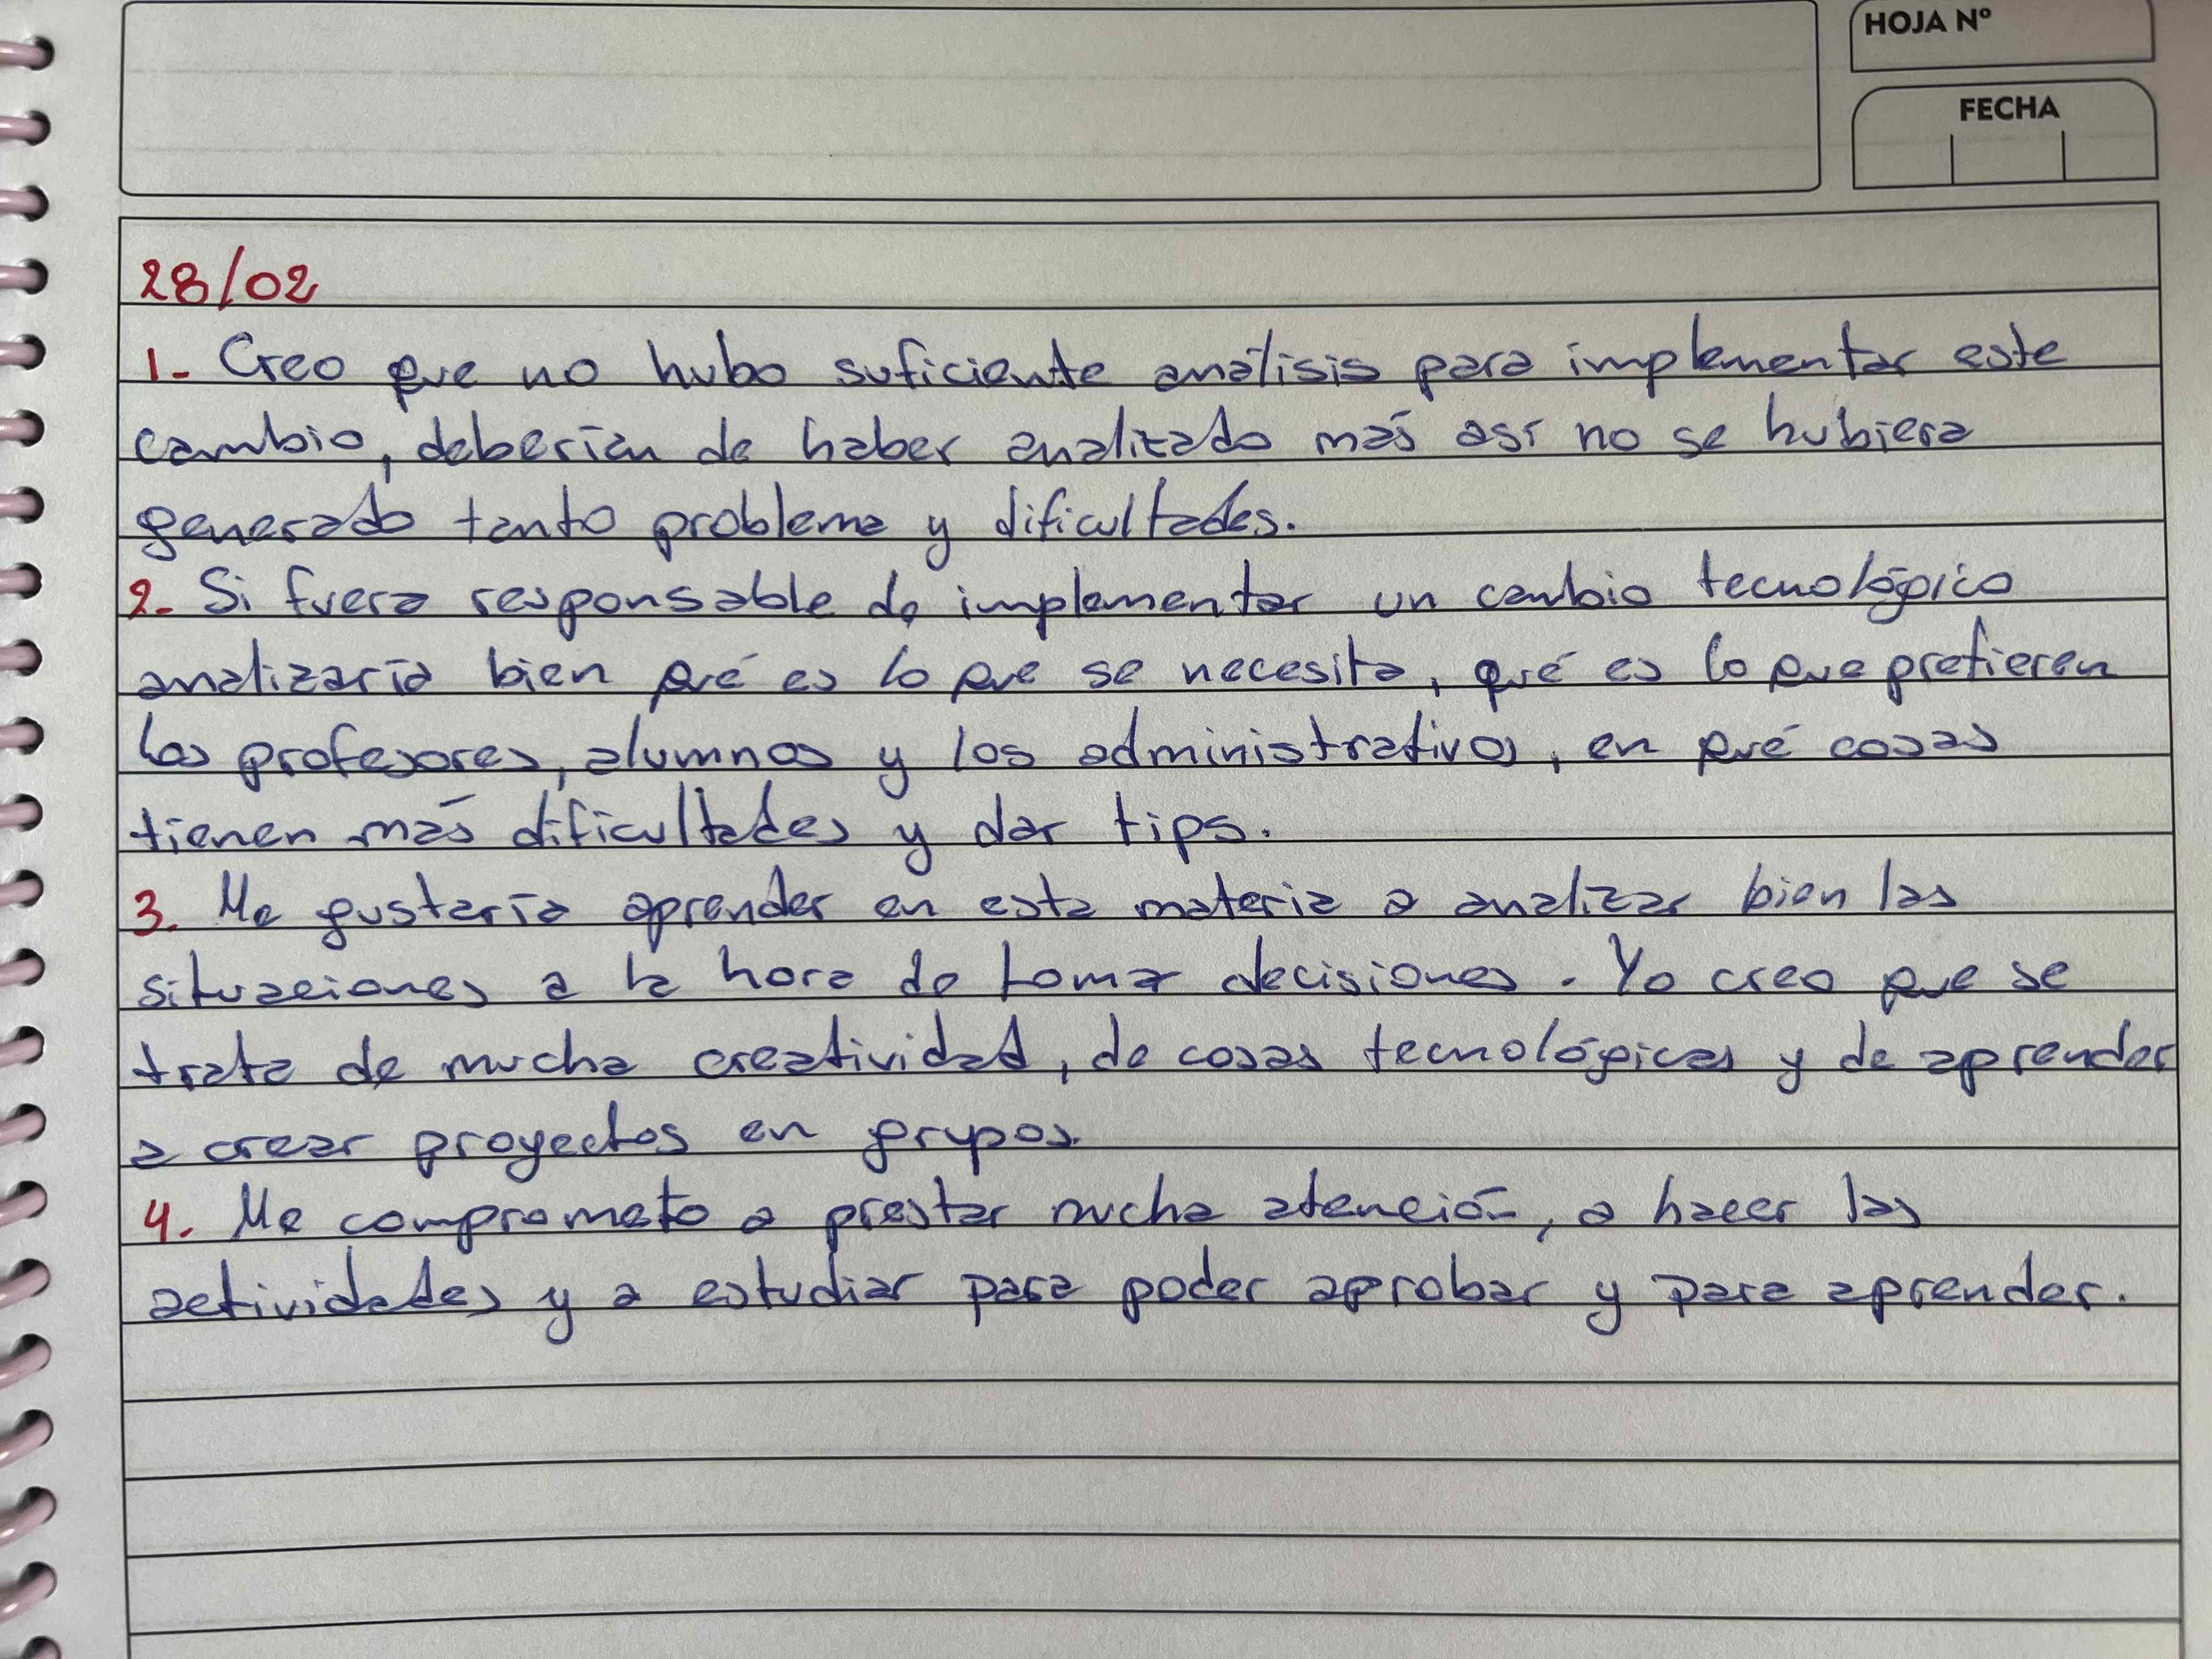 HOJA Nº
FECHA
28/02
1- Creo que no hubo suficiente análisis para implementar este
cambio, deberían de haber analizado más así no se hubiera
generado tanto problema y dificultades.
2- Si fuera responsable de implementar un cambio tecnológico
analizaría bien qué es lo que se necesita, qué es lo que prefieren
los profesores, alumnos y los administrativos, en qué cosas
tienen más dificultades y dar tips.
3. Me gustaría aprender en esta materia a analizar bien las
situaciones a la hora de tomar decisiones. Yo creo que se
trata de mucha creatividad, de cosas tecnológicas y de aprender
a crear proyectos en grupos.
4. Me comprometo a prestar mucha atención, a hacer las
actividades y a estudiar para poder aprobar y para aprender.